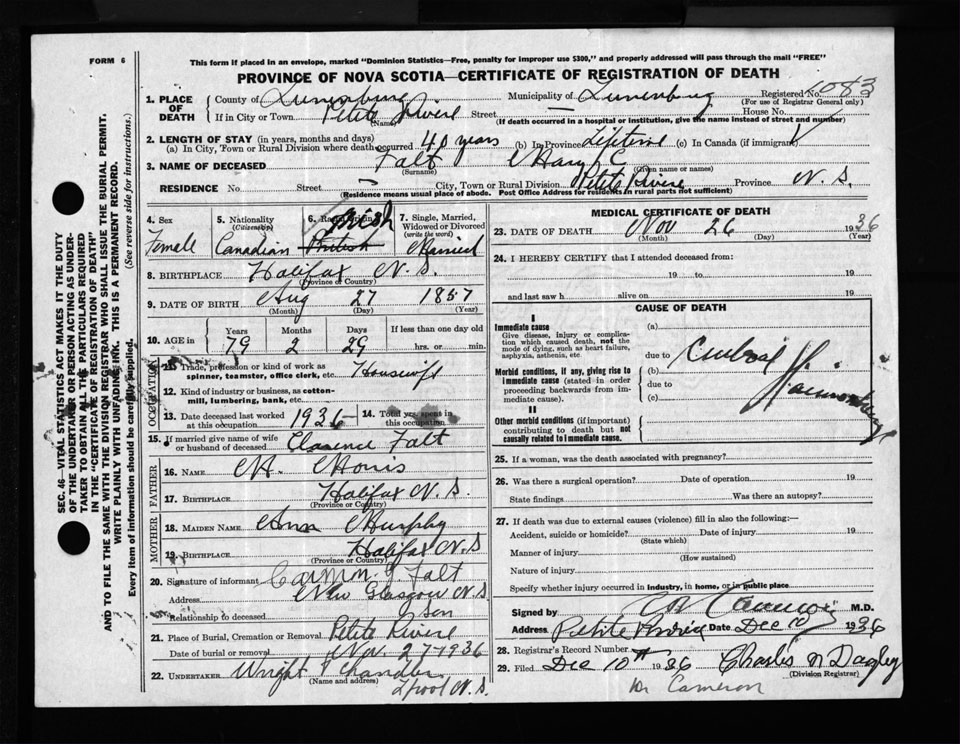 FORM 6
This form if placed in an envelope, marked "Dominion Statistics—Free, penalty for improper use $300," and properly addressed will pass through the mail "FREE"
PROVINCE OF NOVA SCOTIA—CERTIFICATE OF REGISTRATION OF DEATH
Registered No. 6083
(For use of Registrar General only)
1. PLACE OF DEATH
County of Lunenburg Municipality of Lunenburg
If in City or Town Petite Riviere Street — House No.
(Name) (If death occurred in a hospital or institution, give the name instead of street and number)
2. LENGTH OF STAY (in years, months and days)
(a) In City, Town or Rural Division where death occurred 40 years (b) In Province Lifetime (c) In Canada (if immigrant)
3. NAME OF DECEASED Falt Mary C
(Surname) (Given name or names)
RESIDENCE No. Street — City, Town or Rural Division Petite Riviere Province N. S.
(Residence means usual place of abode. Post Office Address for residents in rural parts not sufficient)
4. Sex
Female
5. Nationality
(Citizenship)
Canadian
6. Racial Origin
Irish
British
7. Single, Married, Widowed or Divorced
(write the word)
Married
8. BIRTHPLACE Halifax N. S.
(Province or Country)
9. DATE OF BIRTH Aug 27 1857
(Month) (Day) (Year)
10. AGE in
Years Months Days If less than one day old
79 2 29 hrs. or min.
OCCUPATION
11. Trade, profession or kind of work as spinner, teamster, office clerk, etc. Housewife
12. Kind of industry or business, as cotton-mill, lumbering, bank, etc.
13. Date deceased last worked at this occupation 1936
14. Total yrs. spent in this occupation
15. If married give name of wife or husband of deceased Clarence Falt
FATHER
16. NAME Morris
17. BIRTHPLACE Halifax N. S.
(Province or Country)
MOTHER
18. MAIDEN NAME Ann Murphy
19. BIRTHPLACE Halifax N. S
(Province or Country)
20. Signature of informant Carmon J. Falt
Address New Glasgow N. S
Relationship to deceased Son
21. Place of Burial, Cremation or Removal Petite Riviere
Date of burial or removal Nov. 27 1936
22. UNDERTAKER Wright & Chandler
(Name and address)
L'pool N. S.
MEDICAL CERTIFICATE OF DEATH
23. DATE OF DEATH Nov 26 1936
(Month) (Day) (Year)
24. I HEREBY CERTIFY that I attended deceased from:
19 to 19
and last saw h alive on 19
CAUSE OF DEATH
I
Immediate cause
Give disease, injury or complication which caused death, not the mode of dying, such as heart failure, asphyxia, asthenia, etc
Morbid conditions, if any, giving rise to immediate cause (stated in order proceeding backwards from immediate cause).
II
Other morbid conditions (if important) contributing to death but not causally related to immediate cause.
(a)
due to
(b)
due to
(c)
Cerebral Haemorrhage
25. If a woman, was the death associated with pregnancy?
26. Was there a surgical operation? Date of operation 19
State findings Was there an autopsy?
27. If death was due to external causes (violence) fill in also the following:—
Accident, suicide or homicide? Date of injury 19
(State which)
Manner of injury
(How sustained)
Nature of injury
Specify whether injury occurred in industry, in home, or in public place
Signed by Cameron M.D.
Address Petite Riviere Date Dec 10 1936
28. Registrar's Record Number
29. Filed Dec 10th 1936 Charles N Dagley
(Division Registrar)
Dr Cameron
SEC. 46—VITAL STATISTICS ACT MAKES IT THE DUTY OF THE UNDERTAKER OR PERSON ACTING AS UNDERTAKER TO OBTAIN ALL THE PARTICULARS REQUIRED IN THE "CERTIFICATE OF REGISTRATION OF DEATH" AND TO FILE THE SAME WITH THE DIVISION REGISTRAR WHO SHALL ISSUE THE BURIAL PERMIT.
WRITE PLAINLY WITH UNFADING INK. THIS IS A PERMANENT RECORD.
Every item of information should be carefully supplied. (See reverse side for instructions.)